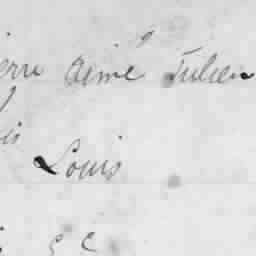 erre Aimé Julien
is
Louis